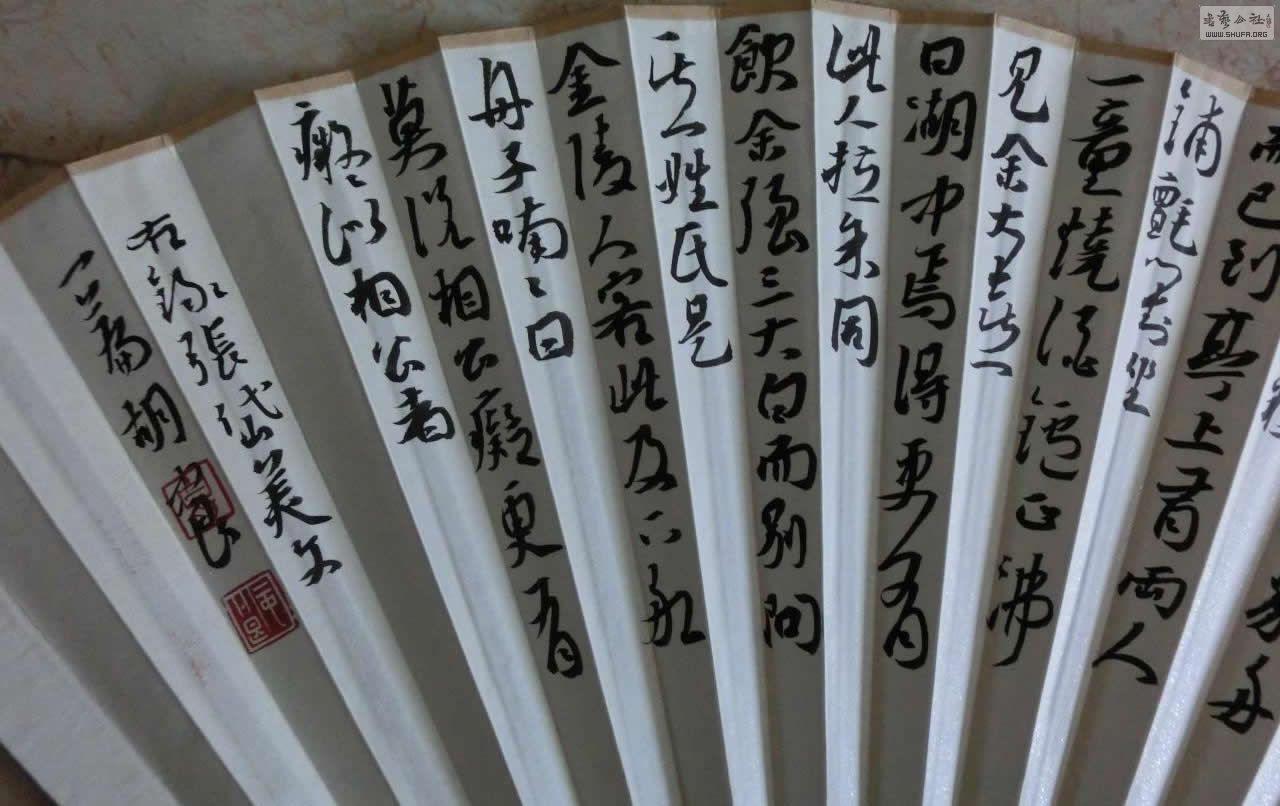 芥舟
而已到亭上有兩人
鋪氈對坐
一童燒酒爐正沸
見余大喜
曰湖中焉得更有
此人拉余同
飲余強三大白而別問
其姓氏是
金陵人客此及下船
舟子喃々曰
莫說相公癡更有
癡似相公者
右錄張岱美文
胡
书艺公社
WWW.SHUFA.ORG